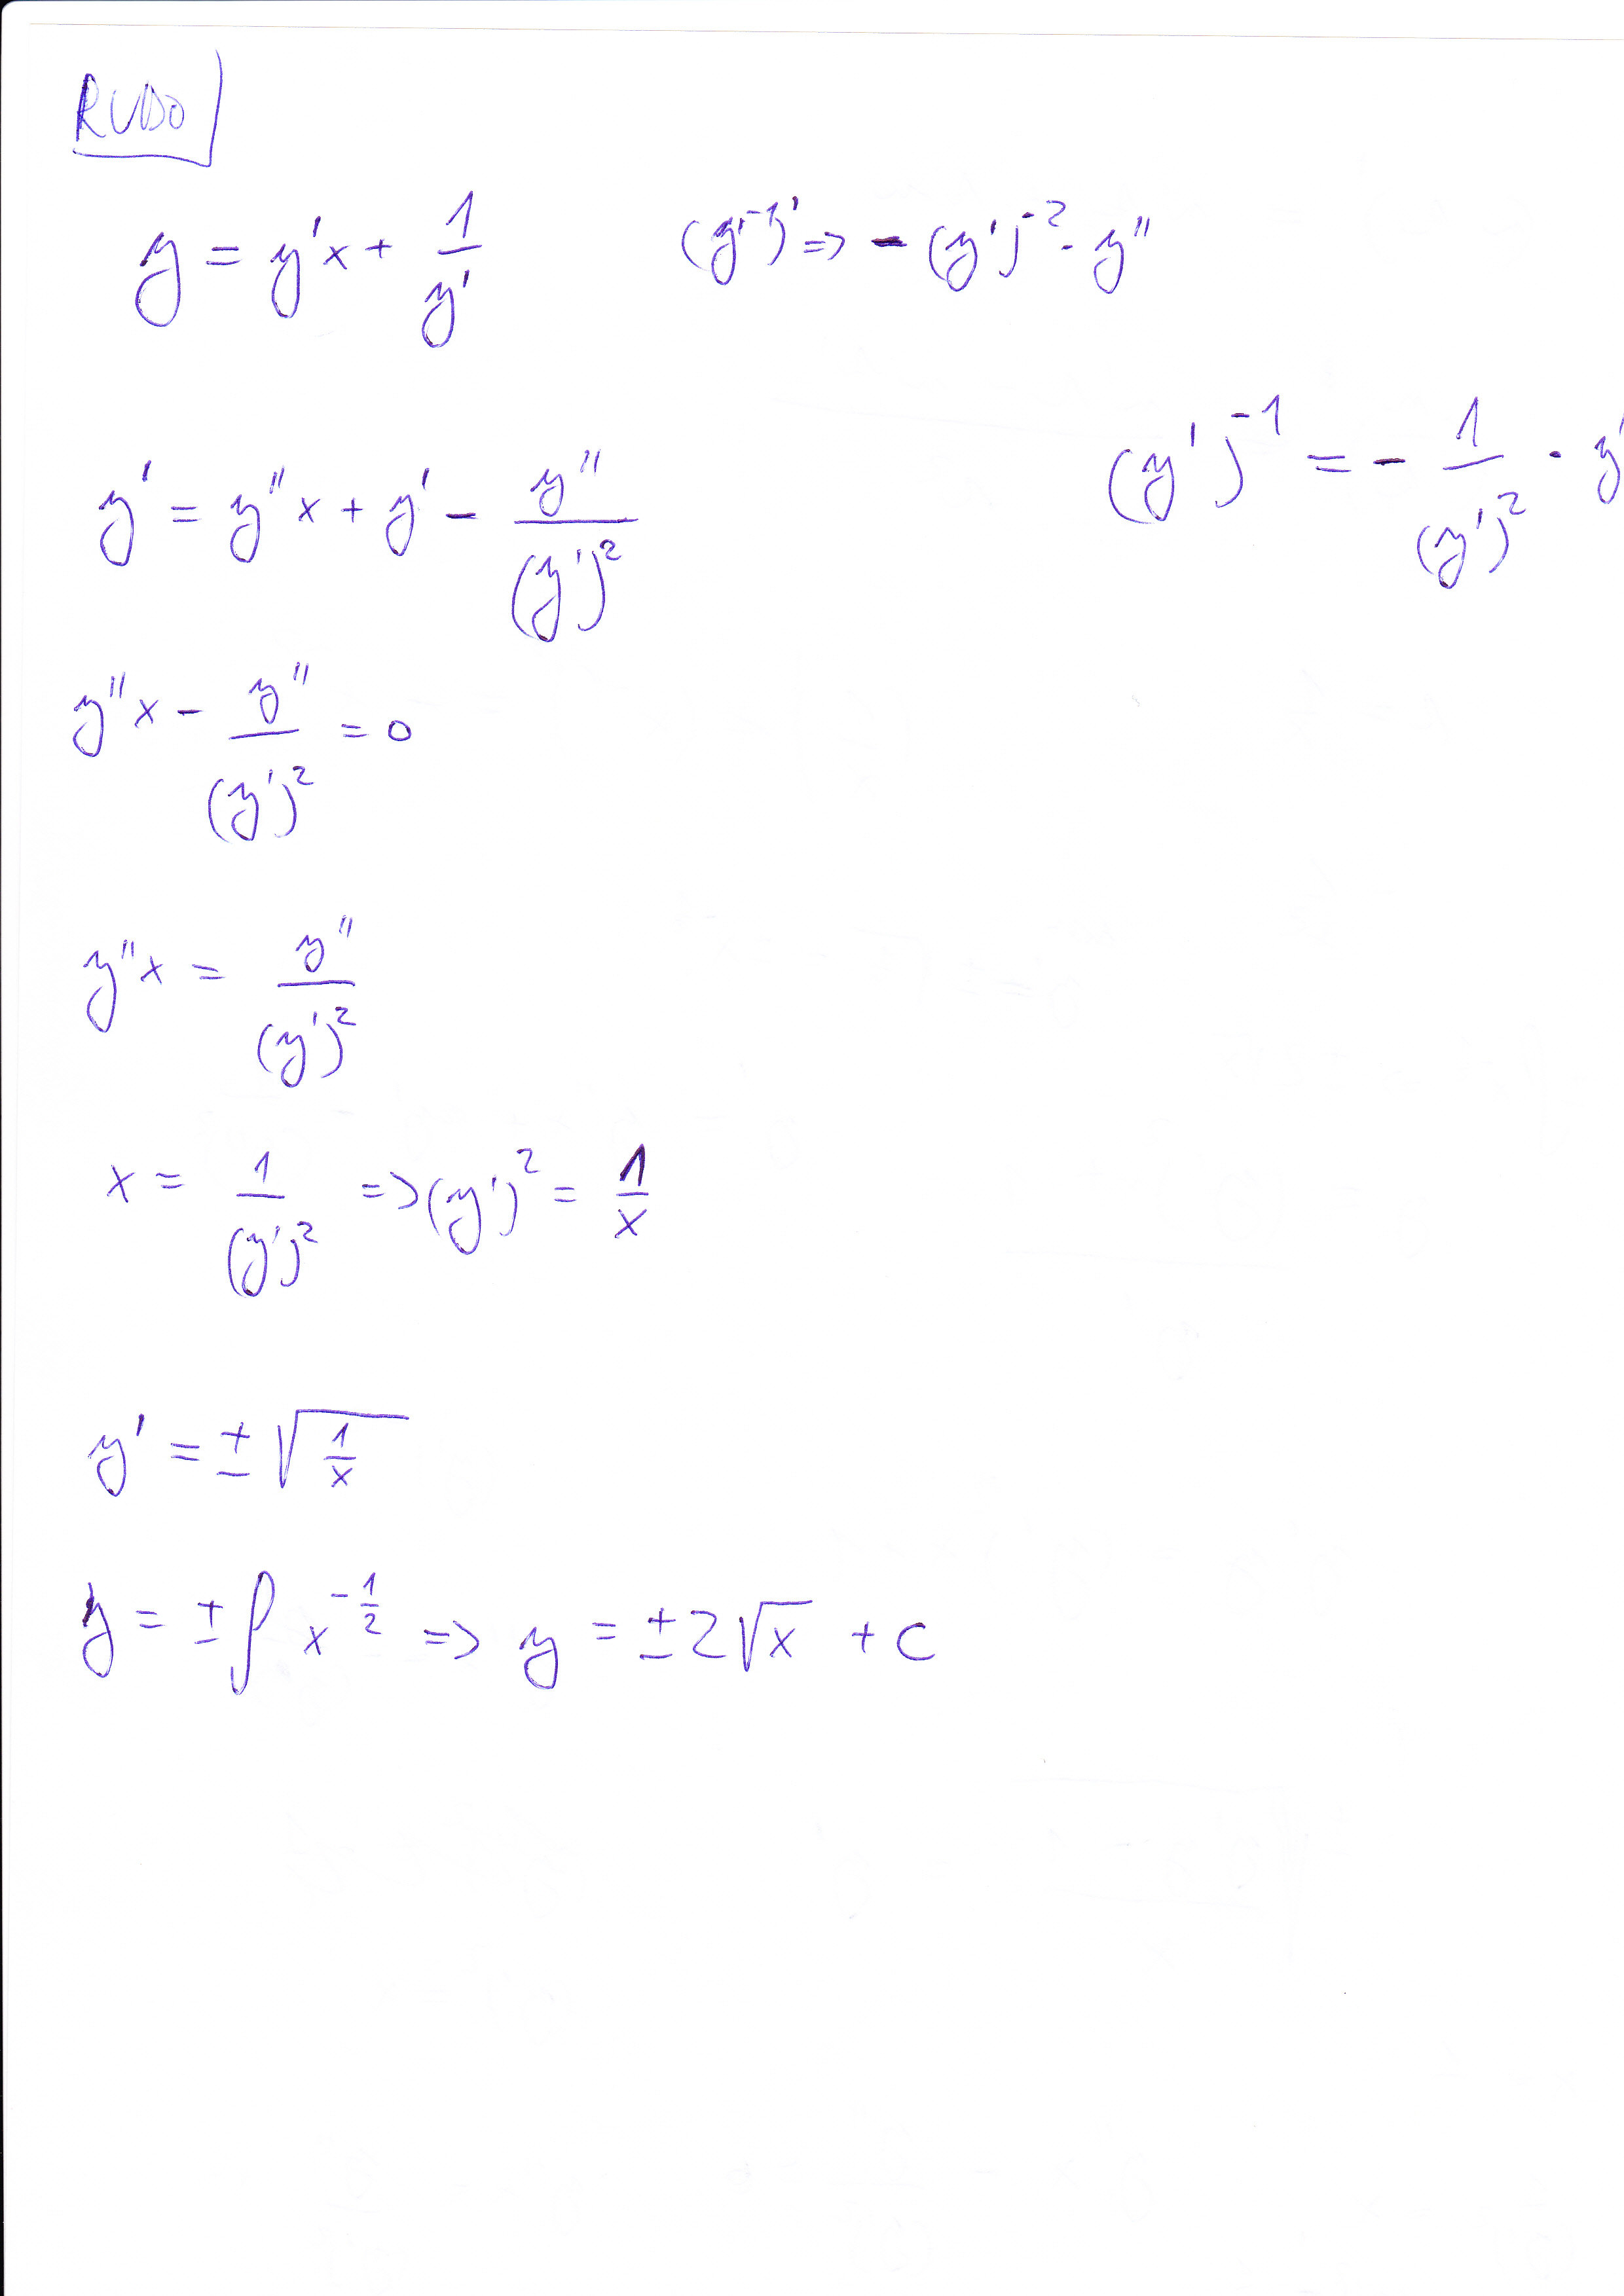 RUDO
y = y'x + 1/y'
(y'⁻¹)' => - (y')⁻² · y''
(y')⁻¹ = - 1/(y')² · y'
y' = y''x + y' - y''/(y')²
y''x - y''/(y')² = 0
y''x = y''/(y')²
x = 1/(y')² => (y')² = 1/x
y' = ± √(1/x)
y = ± ∫ x^(-1/2) => y = ± 2√x + c